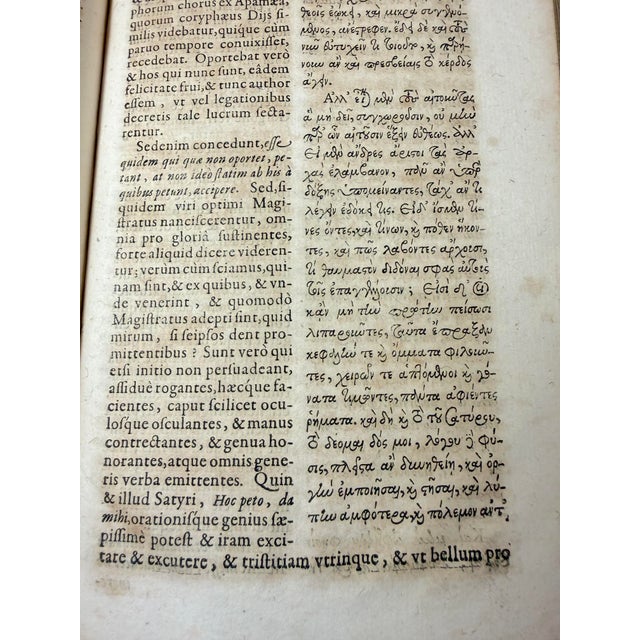 phorum chorus ex Apamæa,
quorum coryphæus Dijs si-
milis videbatur, quique cum
paruo tempore conuixisset,
recedebat. Oportebat verò
& hos qui nunc sunt, eâdem
felicitate frui, & tunc author
essem, vt vel legationibus
decretis tale lucrum secta-
rentur.
Sedenim concedunt, esse
quidem qui quæ non oportet, pe-
tant, at non ideo statim ab his à
quibus petunt, accipere. Sed, si-
quidem viri optimi Magi-
stratus nanciscerentur, om-
nia pro gloriâ sustinentes,
forte aliquid dicere videren-
tur; verùm cum sciamus, qui-
nam sint, & ex quibus, & vn-
de venerint, & quomodò
Magistratus adepti sint, quid
mirum, si seipsos dent pro-
mittentibus? Sunt verò qui
etsi initio non persuadeant,
assiduè rogantes, hæcque fa-
cientes, caput scilicet ocu-
losque osculantes, & manus
contrectantes, & genua ho-
norantes, atque omnis gene-
ris verba emittentes. Quin
& illud Satyri, Hoc peto, da
mihi, orationisque genius sæ-
pissimè potest & iram exci-
tare & excutere, & tristitiam vtrinque, & vt bellum pro
θεοῖς ἐῴκει, καὶ μικρὰ συγγενό-
μενος, ἀνέστρεφεν.
νοίῳ ἂν καὶ πρεσβείαις τὸ κέρδος
ἄγειν.
Ἀλλ' εἰσὶ μὲν τοὺς αἰτοῦντας
ἃ μὴ δεῖ, συγχωροῦσιν, οὐ μὴν
παρ' ὧν αἰτοῦσιν ἕξειν εὐθέως. ἀλλ'
εἰ μὲν ἄνδρες ἄριστοι τὰς ἀρ-
χὰς ἐλάμβανον, πάντα ἂν ὑπὲρ
δόξης ὑπομείναντες, τάχ' ἄν τι
λέγειν ἐδόκει τις. εἰ δ' ἴσμεν τί-
νες ὄντες, καὶ τίνων, καὶ πόθεν ἥκον-
τες, καὶ πῶς λαβόντες ἄρχουσι,
τί θαυμαστὸν διδόναι σφᾶς αὐτοὺς
τοῖς ἐπαγγέλλουσιν; Εἰσὶ δὴ οἳ
κἂν μὴ τὴν πρώτην πείσωσι
λιπαροῦντες, ταῦτα ἔπραξαν
κεφαλήν τε καὶ ὄμματα φιλοῦν-
τες, χειρῶν τε ἁπτόμενοι καὶ γό-
νατα τιμῶντες, πάντα ἀφιέντες
ῥήματα. καὶ δὴ καὶ τὸ τοῦ Σατύρου,
τὸ δέομαι δός μοι, λόγου καὶ φύ-
σις, πλεῖστα ἂν δυνηθείη, καὶ ὀρ-
γὴν ἐμποιῆσαι, καὶ στῆσαι, καὶ λύ-
πην ἀμφότερα, καὶ πόλεμον ἀντ'